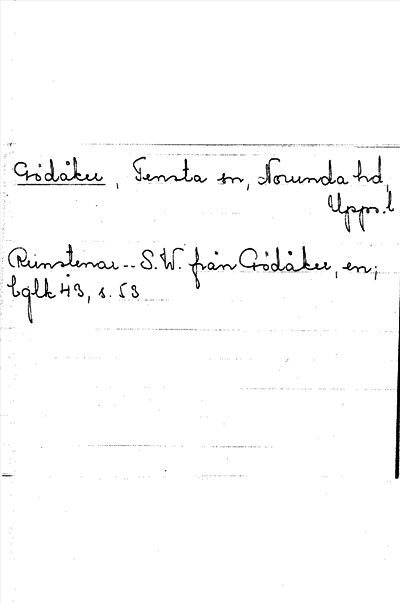 Gödåker, Tensta sn, Norunda hd,
Upps.l
Runstenar -- S.W. från Gödåker, en;
bglk 43, s. 53